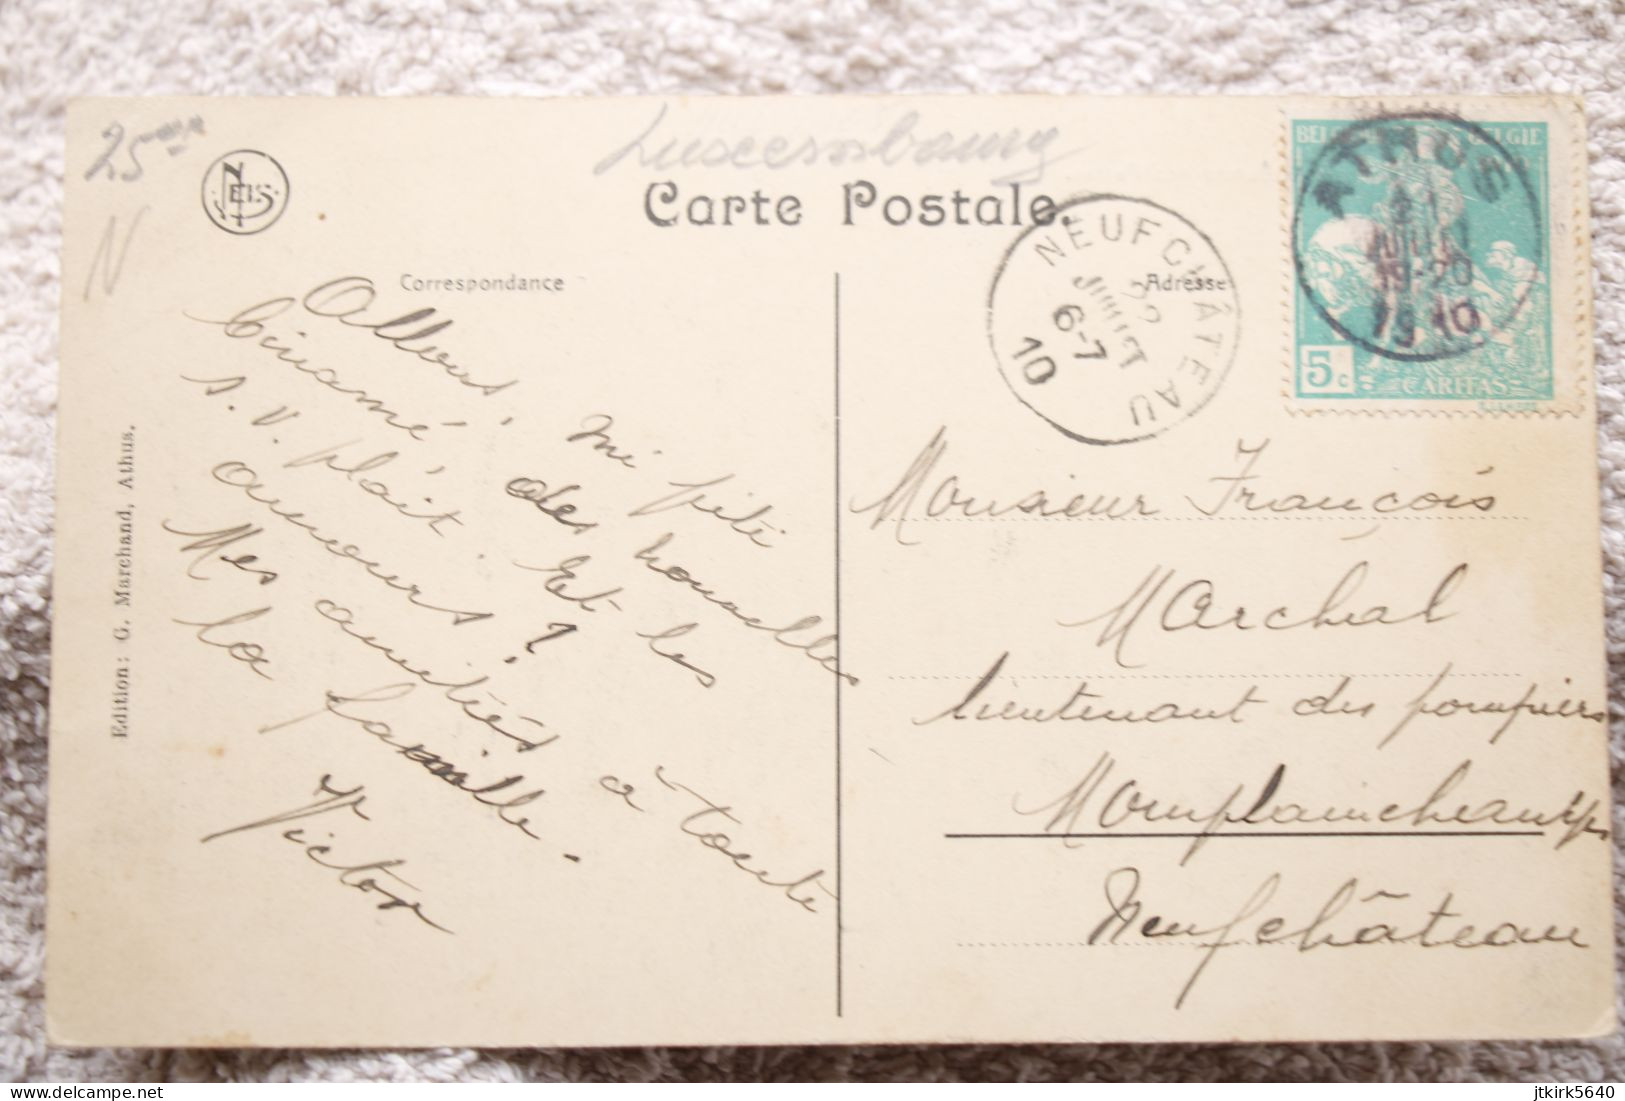 25
N
NELS
Luxembourg
Carte Postale.
Correspondance
Adresse
NEUFCHÂTEAU
22
JUILLET
6-7
10
BELGIQUE BELGIE
5c
CARITAS
ATHUS
21
JUIL
19-20
1910
Allons, mi piti
binamé des nouvelles
s. v. plait. Et les
amours ?
Mes amitiés à toute
la famille.
Victor
Monsieur François
Marchal
lieutenant des pompiers
Neufchâteau
Edition: G. Marchand, Athus.
jtkirk5640